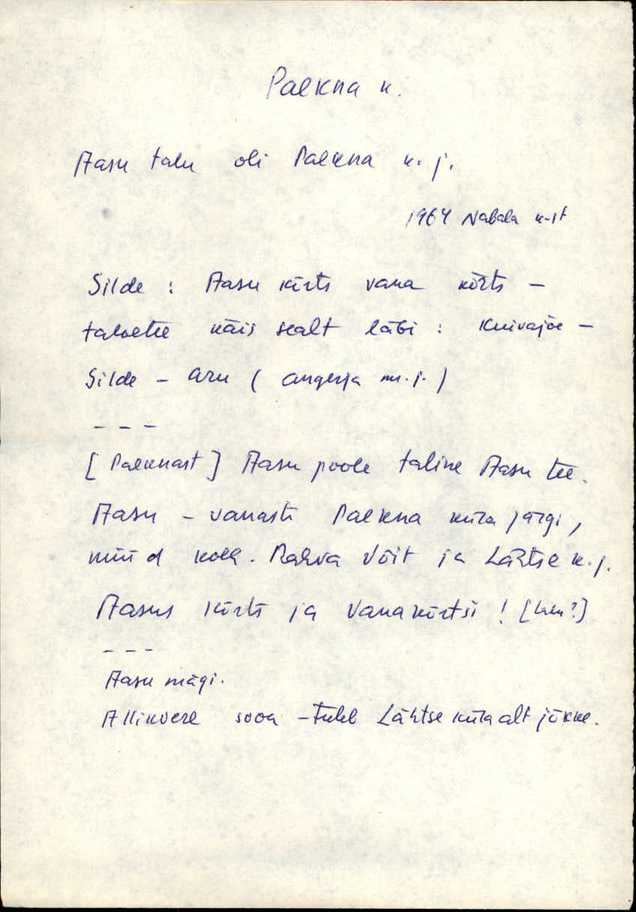 Paekna k.
Aasu talu oli Paekna k. j.
1964 Nabala k-st
Silde : Aasu kõrts vana kõrts –
taloetee käis sealt läbi : Kuivajõe –
Silde – aru ( angerja m. j. )
– – –
[ Paeknast ] Aasu poole taline Aasu tee.
Aasu – vanasti Paekna küla järgi,
nüüd kolh. Rahva Võit ja Lähtse k. j.
Aasus kõrts ja Vanakõrtsi !
– – –
Aasu mägi.
Allikvere sooa – tuleb Lähtse küla alt jõkke.